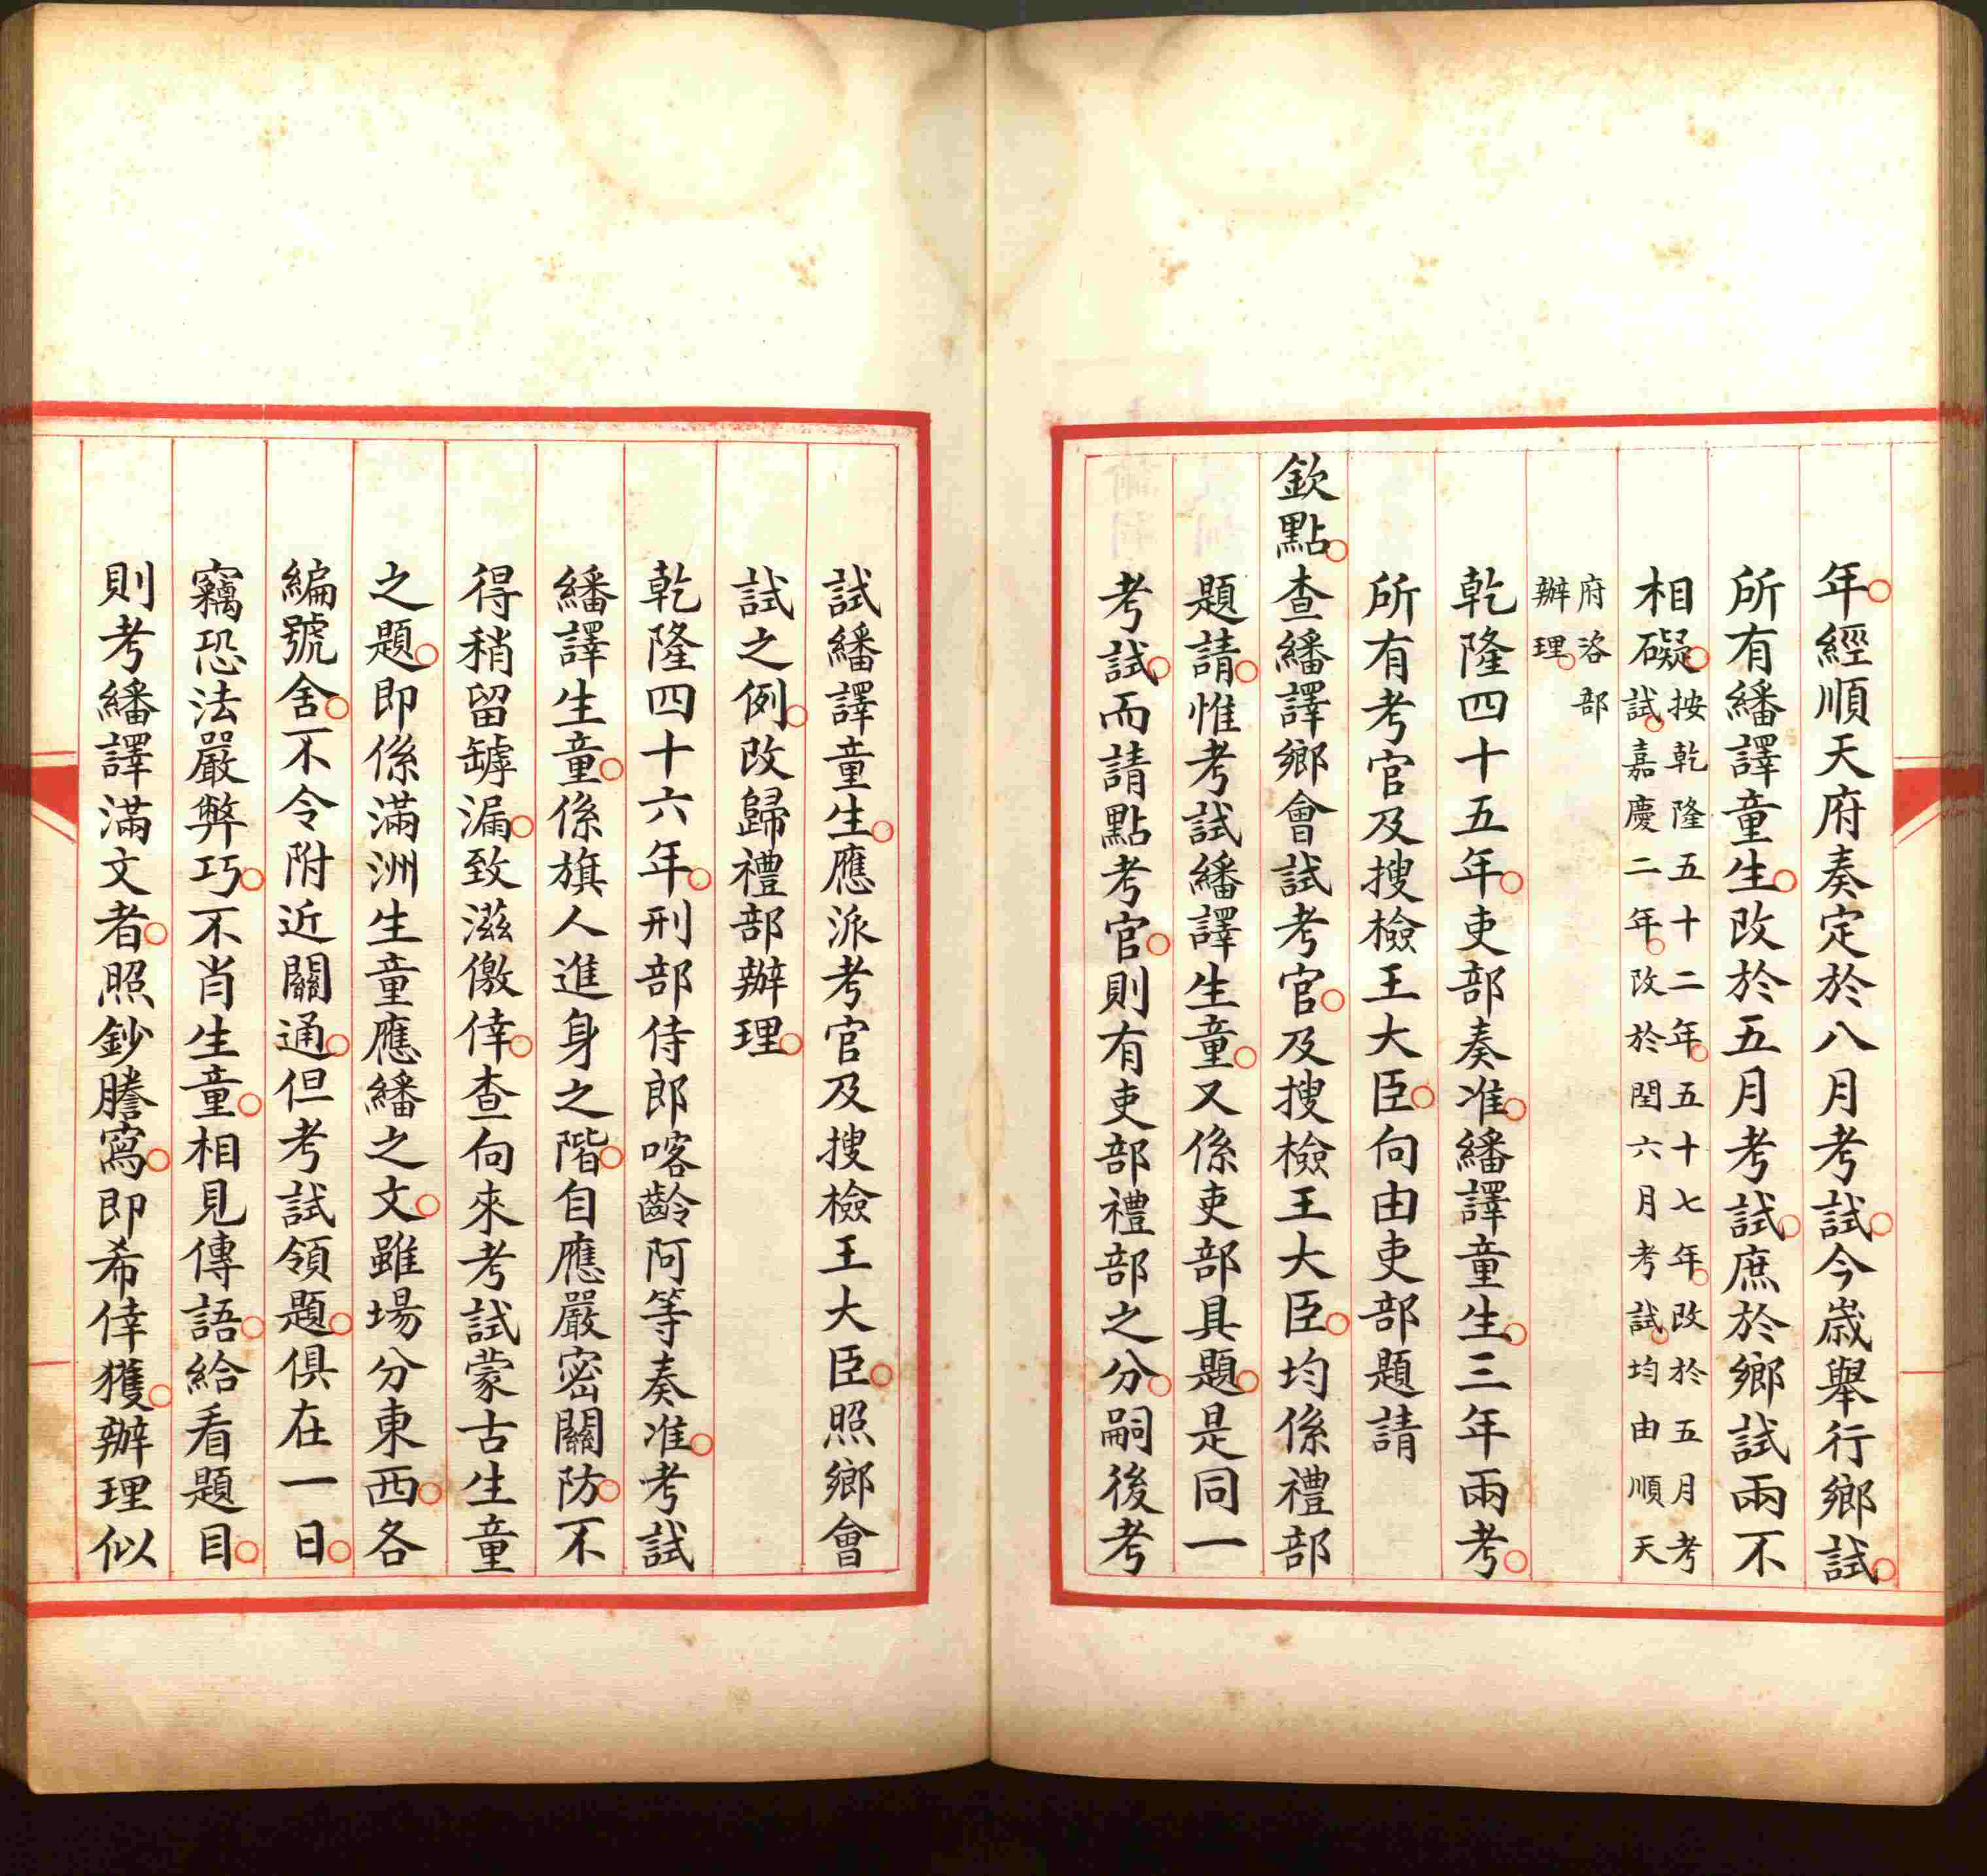 年經順天府奏定於八月考試今歲舉行鄉試
所有繙譯童生改於五月考試庶於鄉試兩不
相礙按乾隆五十二年五十七年改於五月考
試嘉慶二年改於閏六月考試均由順天
府咨部
辦理
乾隆四十五年吏部奏准繙譯童生三年兩考
所有考官及搜檢王大臣向由吏部題請
欽點查繙譯鄉會試考官及搜檢王大臣均係禮部
題請惟考試繙譯生童又係吏部具題是同一
考試而請點考官則有吏部禮部之分嗣後考
試繙譯童生應派考官及搜檢王大臣照鄉會
試之例改歸禮部辦理
乾隆四十六年刑部侍郎喀齡阿等奏准考試
繙譯生童係旗人進身之階自應嚴密關防不
得稍留罅漏致滋儌倖查向來考試蒙古生童
之題即係滿洲生童應繙之文雖場分東西各
編號舍不令附近關通但考試領題俱在一日
竊恐法嚴弊巧不肖生童相見傳語給看題目
則考繙譯滿文者照鈔謄寫即希倖獲辦理似